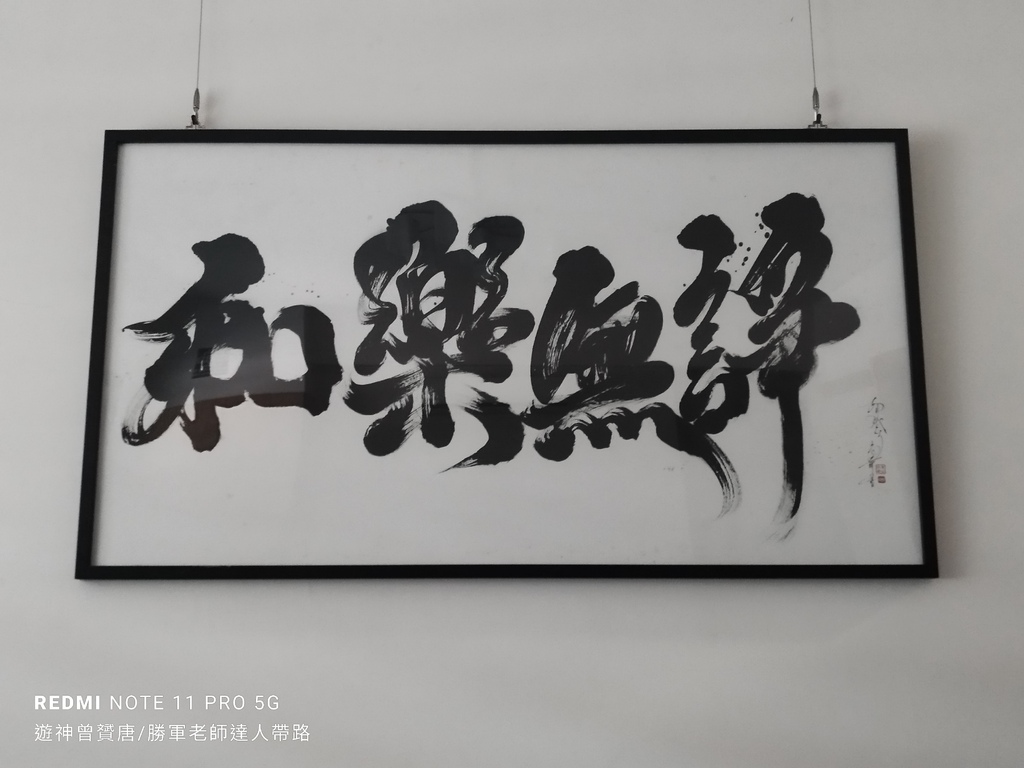 和樂無諍
REDMI NOTE 11 PRO 5G
遊神曾贇唐/勝軍老師達人帶路